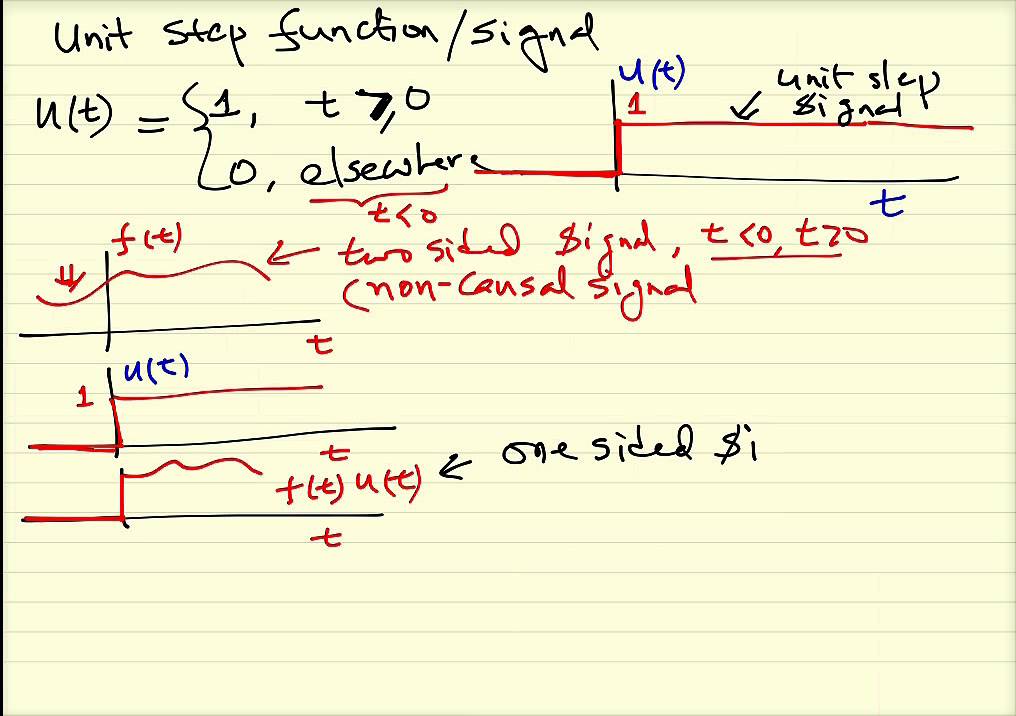 Unit step function/signal
u(t) = {1, t ⩾ 0
0, elsewhere
t<0
u(t)
1
unit step
signal
t
f(t)
two sided signal, t<0, t≥0
(non-causal signal
t
u(t)
1
t
one sided si
f(t) u(t)
t